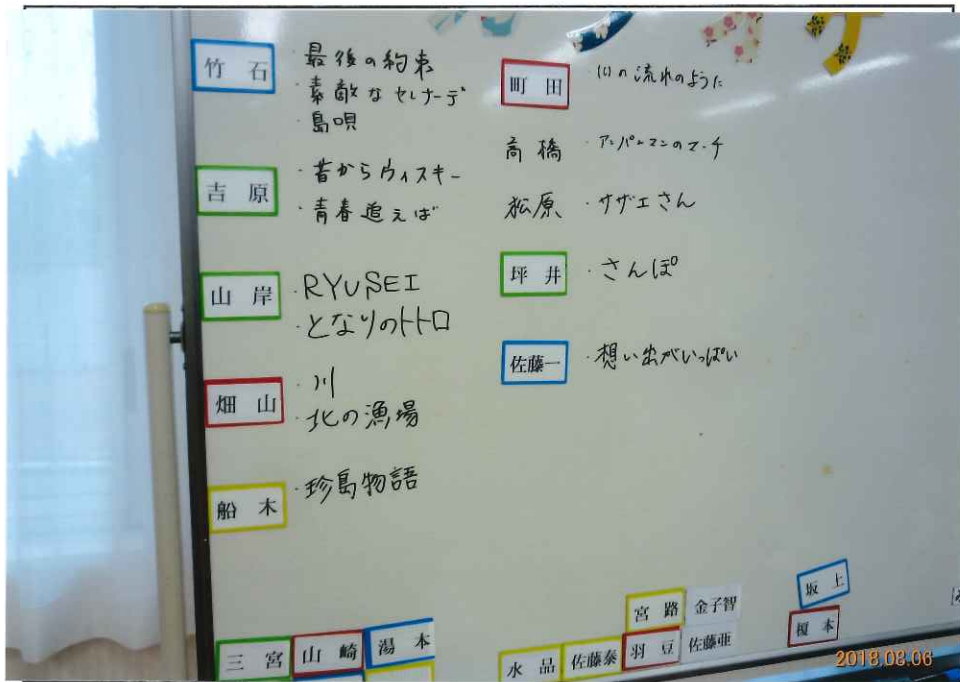 竹石
・最後の約束
・素敵なセレナーデ
・島唄
吉原
・昔からウィスキー
・青春追えば
山岸
・RYUSEI
・となりのトトロ
畑山
・川
・北の漁場
船木
・珍島物語
町田
・川の流れのように
高橋
・アンパンマンのマーチ
松原
・サザエさん
坪井
・さんぽ
佐藤一
・想い出がいっぱい
三宮
山崎
湯本
水品
佐藤泰
宮路
羽豆
金子智
佐藤亜
坂上
榎本
2018.08.06